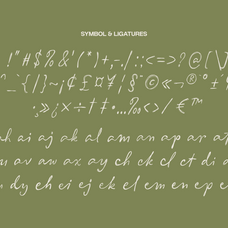 SYMBOL & LIGATURES
! " # $ % & ' ( * ) + , - . / : ; < = > ? @ [ \
^ _ ` { | } ~ ¡ ¢ £ ¤ ¥ ¦ § ¨ © « ¬ ® ¯ ° ±
· ¸ » ¿ × ÷ † ‡ • … ‰ ‹ › ⁄ € ™
ah ai aj ak al am an ap ar at
av aw ax ay ch ck cl ct di
dy eh ei ej ek el em en ep